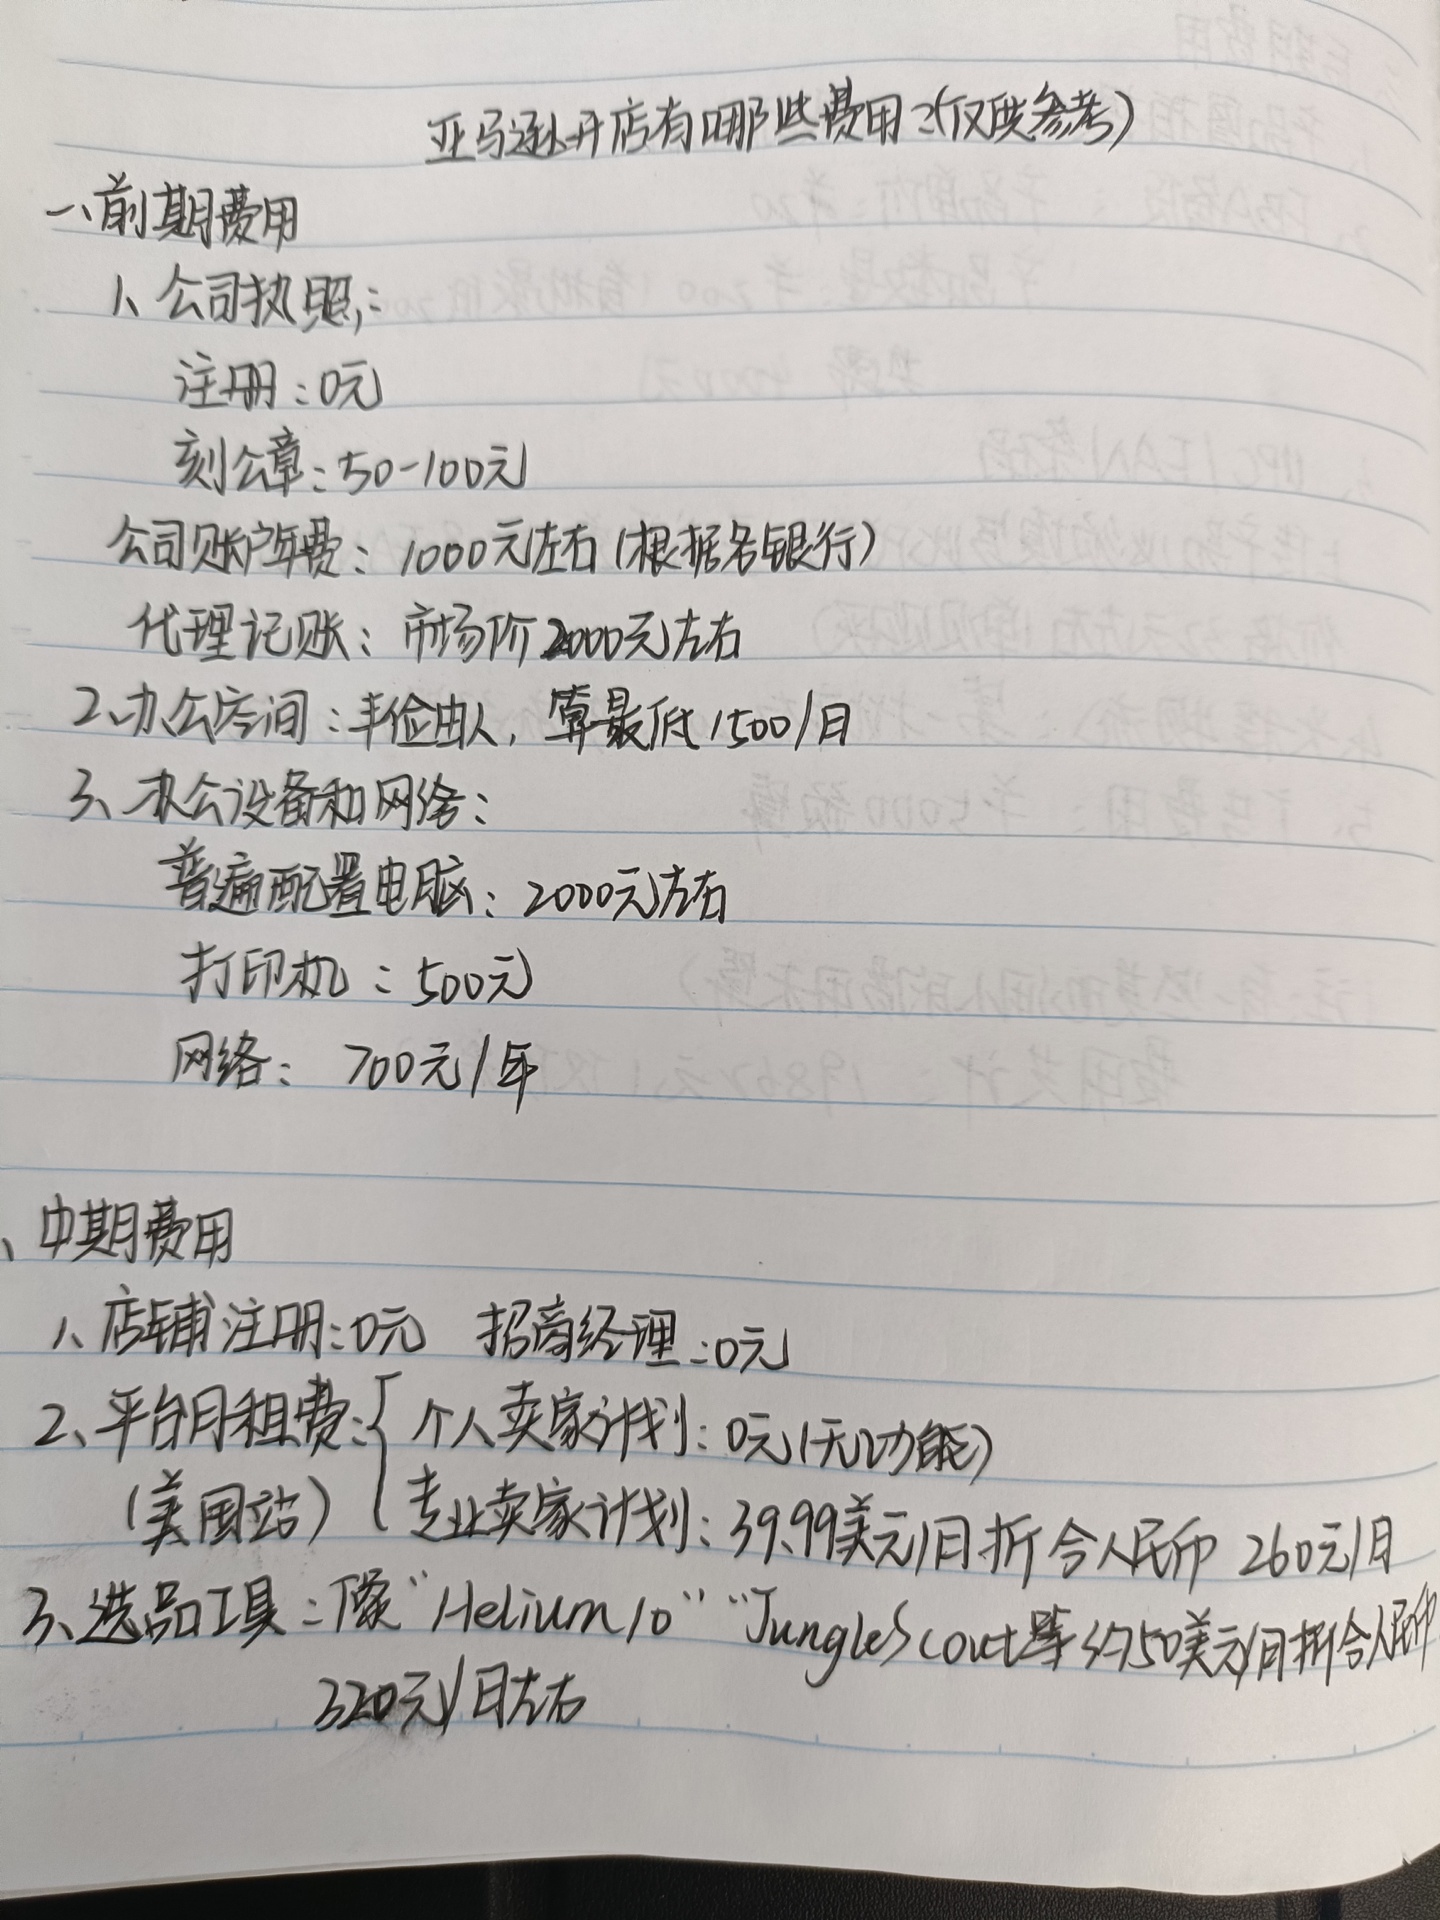 亚马逊开店有哪些费用?(仅供参考)
一、前期费用
1、公司执照:
注册:0元
刻公章:50-100元
公司账户年费:1000元左右(根据各银行)
代理记账:市场价2000元左右
2、办公房间:丰俭由人,算最低1500/月
3、办公设备和网络:
普遍配置电脑:2000元左右
打印机:500元
网络:700元/年
、中期费用
1、店铺注册:0元 招商经理:0元
2、平台月租费:{个人卖家计划:0元(无功能)
(美国站) 专业卖家计划:39.99美元/月折合人民币260元/月
3、选品工具:像"Helium10""JungleScout等约50美元/月折合人民币
320元/月左右